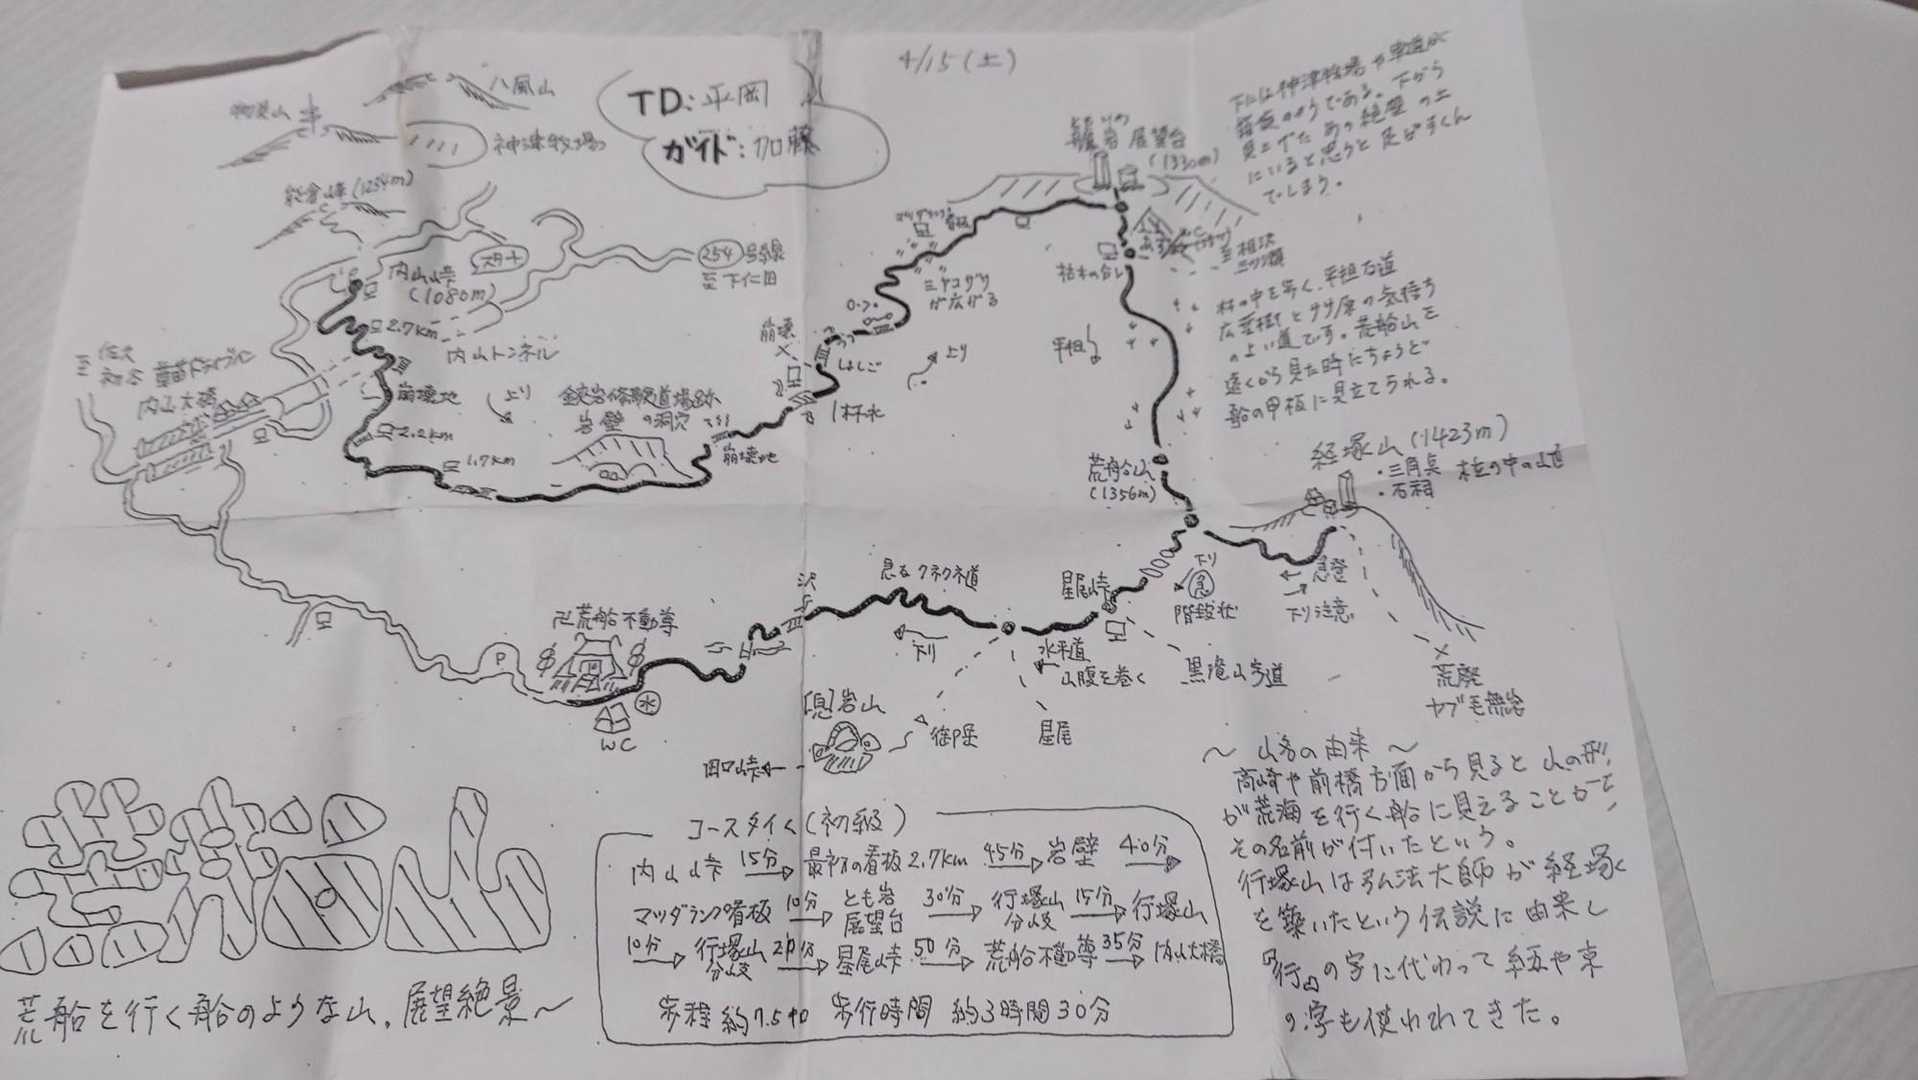 4/15(土)
TD:平岡
ガイド:加藤
八風山
物見山
神津牧場
熊倉峰(1234m)
内山峠
(1080m)
スタート
254号線
至下仁田
2.7km
内山トンネル
至佐久
初谷
内山大橋
崩壊地
上り
2.2km
1.7km
鋏岩修験道場跡
岩壁の洞穴
崩壊地
崩壊
はしご
1杯水
上り
ミヤコザサ
が広がる
とも岩展望台
(1330m)
至相沢
三ツ瀬
平坦
下には神津牧場や車道が
箱庭のようである。下から
見上げたあの絶壁の上
にいると思うと足がすくん
でしまう。
林の中を歩く、平担な道
広葉樹とササ原の気持ち
のよい道です。荒船山を
遠くから見た時にちょうど
船の甲板に見立てられる。
荒船山
(1356m)
経塚山(1423m)
・三角点
・石祠
林の中の山道
急登
下り注意
荒廃
ヤブ毛無岩
下り
急
階段状
星尾峠
黒滝山歩道
水平道
山腹を巻く
星尾
御岳
急なクネクネ道
下り
沢
卍荒船不動尊
P
水
WC
兜岩山
田口峠
コースタイム(初級)
内山峠 15分→ 最初の看板2.7km 45分→ 岩壁 40分→
マツダランプ看板 10分→ とも岩展望台 30分→ 行塚山分岐 15分→ 行塚山
10分→ 行塚山分岐 20分→ 星尾峠 50分→ 荒船不動尊 35分→ 内山大橋
歩程 約7.5キロ 歩行時間 約3時間30分
〜山名の由来〜
高崎や前橋方面から見ると山の形
が荒海を行く船に見えることから
その名前が付いたという。
行塚山は弘法大師が経塚
を築いたという伝説に由来し
『行』の字に代わって経や京
の字も使われてきた。
荒船山
荒船を行く船のような山、展望絶景〜